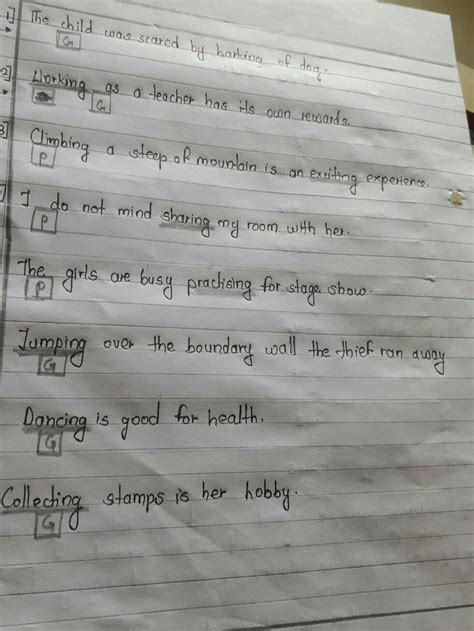 1] The child was scared by barking of dog.
G
2] Working as a teacher has its own rewards.
G
3] Climbing a steep of mountain is an exciting experience.
P
] I do not mind sharing my room with her.
P
The girls are busy practising for stage show.
P
Jumping over the boundary wall the thief ran away
G
Dancing is good for health.
G
Collecting stamps is her hobby.
G